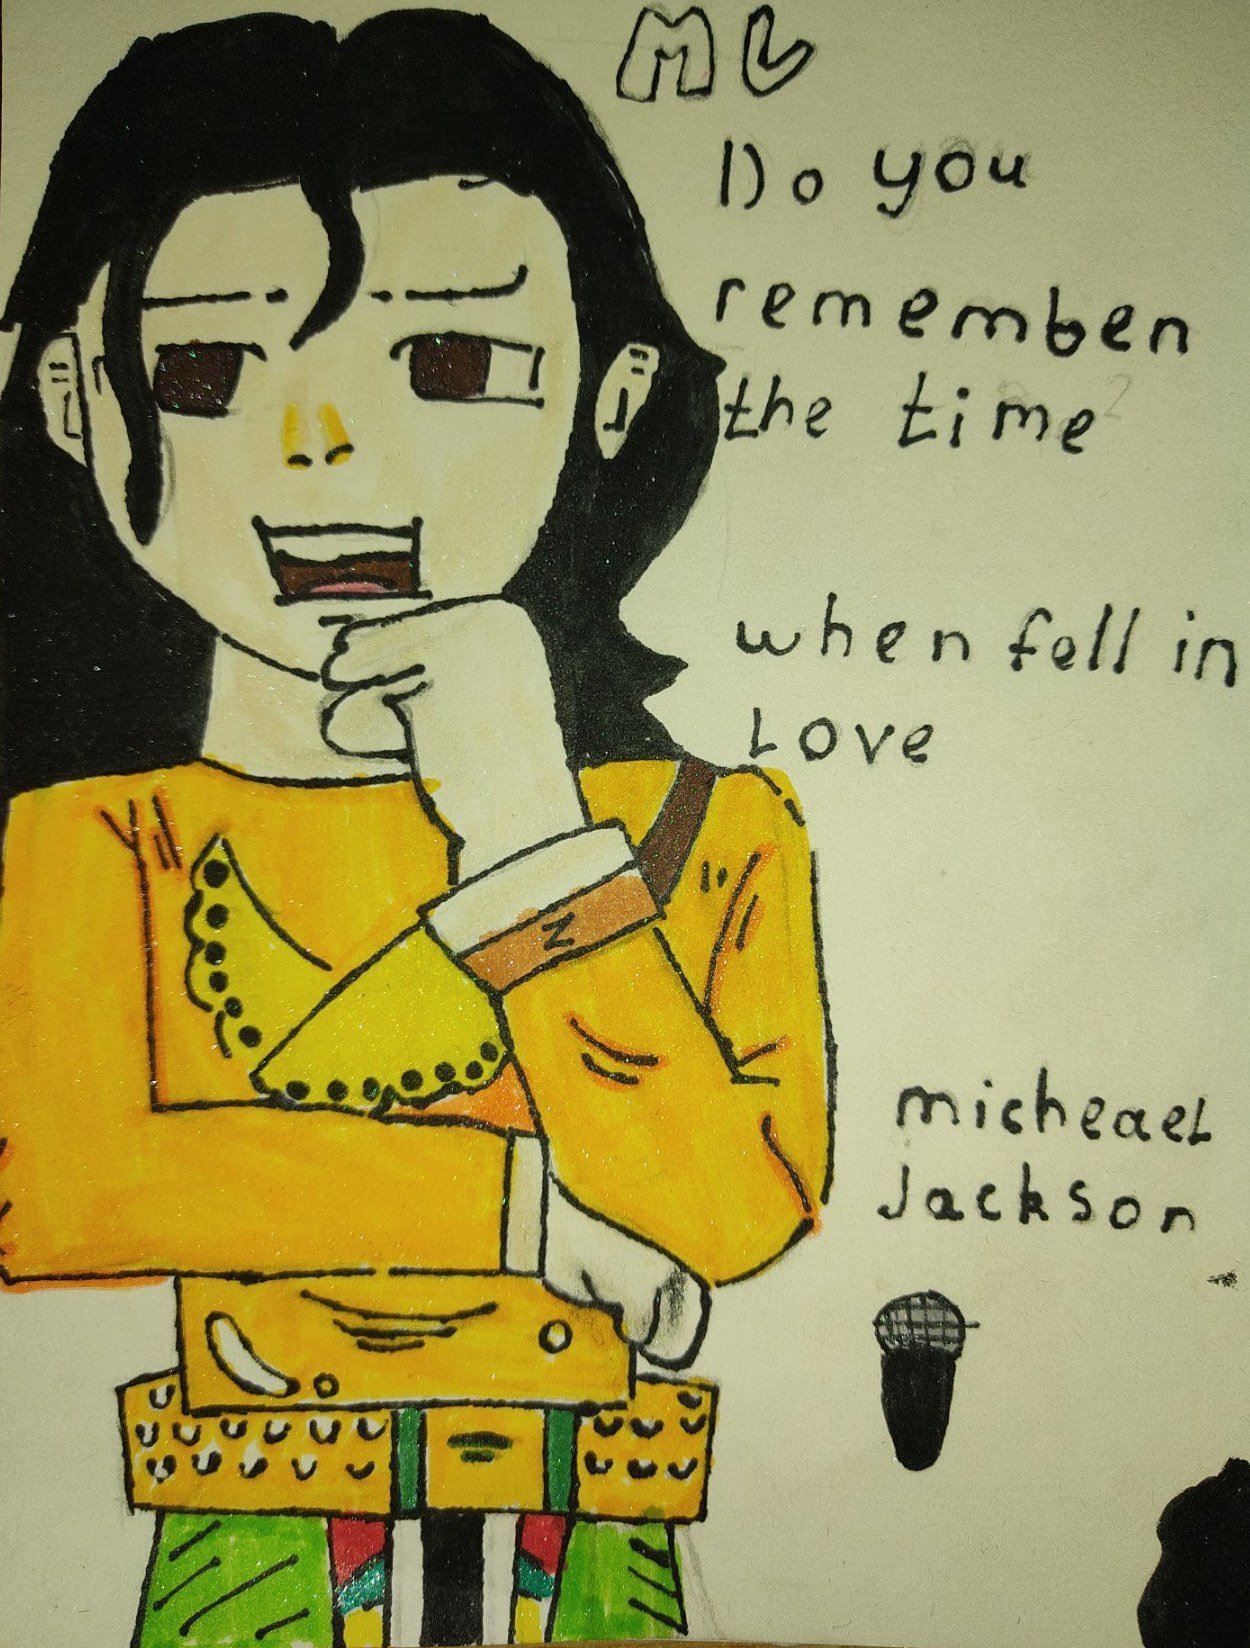 Do you
rememben
the time
when fell in
Love
micheael
Jackson